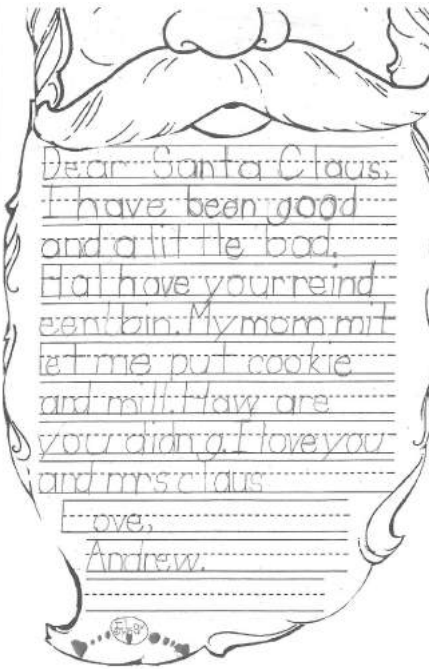 Dear Santa Claus,
I have been good
and a little bad.
Hal have your reind
eentbin. My mom mit
let me put cookie
and mill. Haw are
you didng. I love you
and mrs claus
Love,
Andrew.